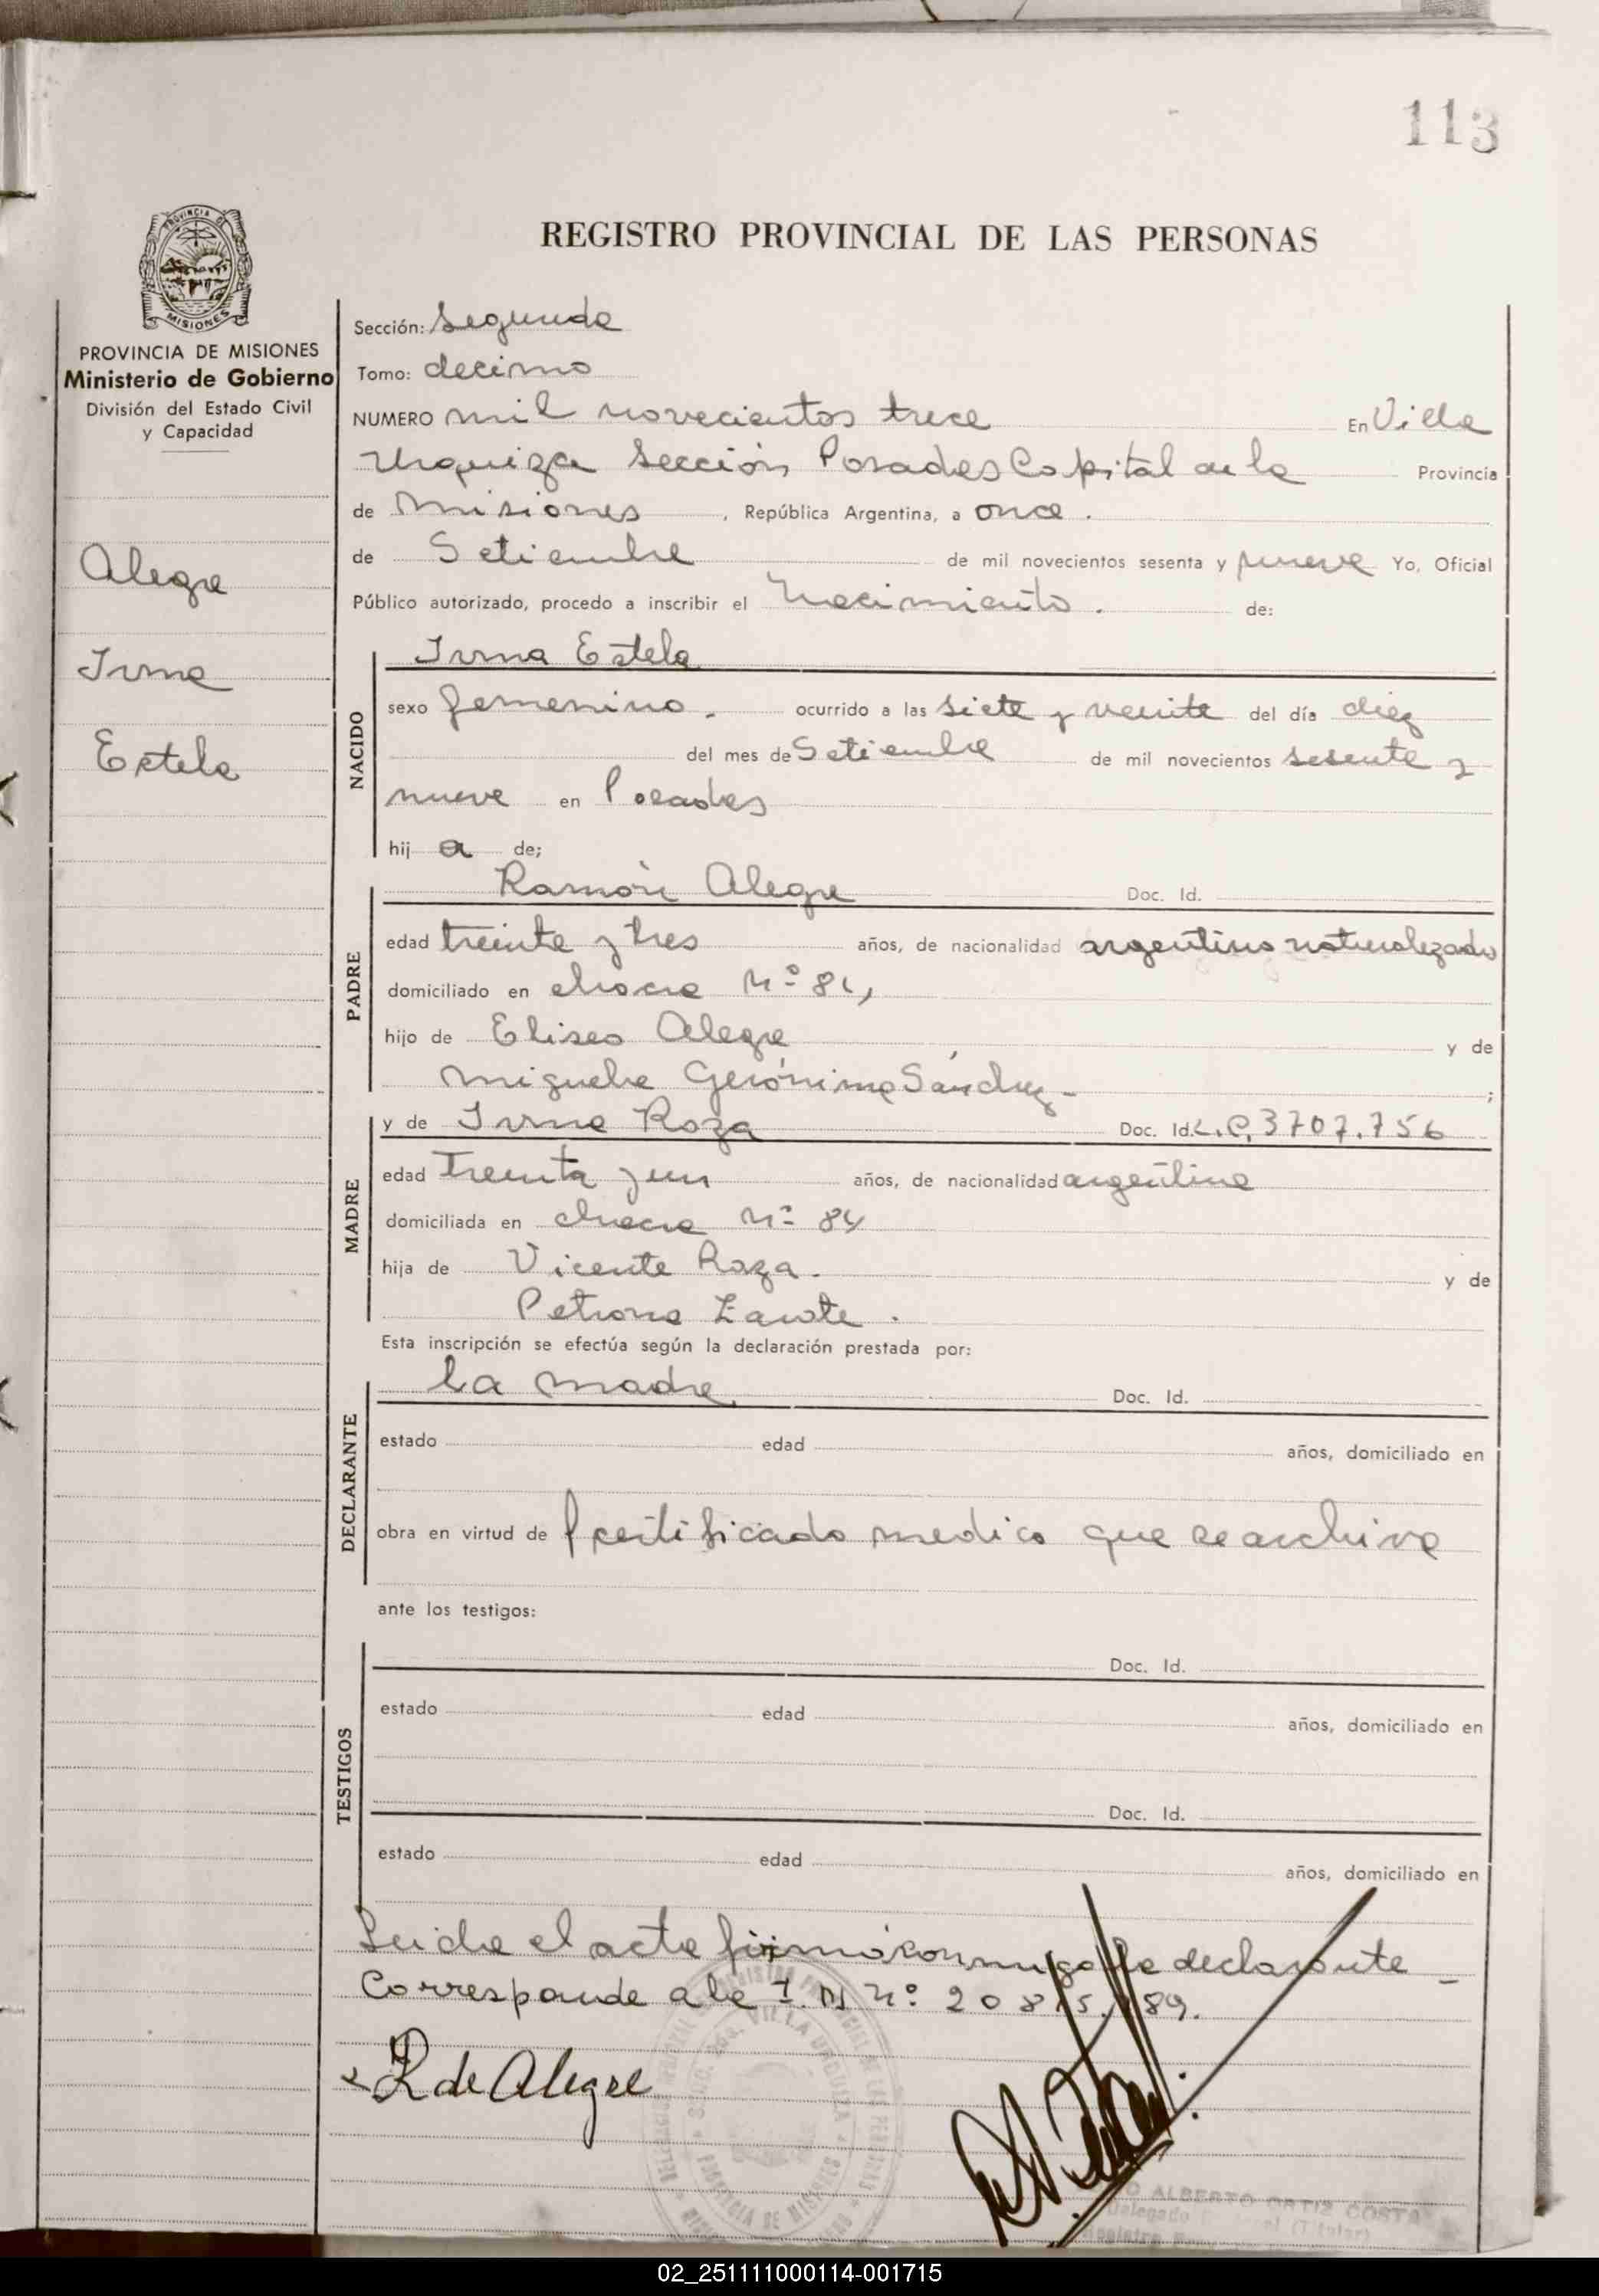 113
PROVINCIA DE MISIONES
REGISTRO PROVINCIAL DE LAS PERSONAS
PROVINCIA DE MISIONES
Ministerio de Gobierno
División del Estado Civil
y Capacidad
Alegre
Irma
Estela
Sección: Segunda
Tomo: decimo
NUMERO mil novecientos trece En Villa
Urquiza Sección Posadas Capital de la Provincia
de Misiones, República Argentina, a once.
de Setiembre de mil novecientos sesenta y nueve Yo, Oficial
Público autorizado, procedo a inscribir el Nacimiento. de:
NACIDO
Irma Estela
sexo femenino. ocurrido a las siete y veinte del día diez
del mes de Setiembre de mil novecientos sesenta y
nueve en Posadas
hij a de;
PADRE
Ramón Alegre Doc. Id.
edad treinta y tres años, de nacionalidad argentino naturalizado
domiciliado en chacra Nº
hijo de Eliseo Alegre y de
Miguela Gerónima Sánchez-;
MADRE
y de Irma Roza Doc. Id. L.C. 3707.756
edad Treinta y un años, de nacionalidad argentina
domiciliada en chacra Nº 84
hija de Vicente Roza. y de
Petrona Zarate.
Esta inscripción se efectúa según la declaración prestada por:
DECLARANTE
la madre Doc. Id.
estado edad años, domiciliado en
obra en virtud de certificado medico que se archiva
ante los testigos:
TESTIGOS
Doc. Id.
estado edad años, domiciliado en
Doc. Id.
estado edad años, domiciliado en
Leida el acta firmó conmigo la declarante
Corresponde a la I. N Nº 20815.189.
R de Alegre
VILLA URQUIZA
PROVINCIA DE MISIONES
ALBERTO ORTIZ COSTA
Delegado (Titular)
02_251111000114-001715